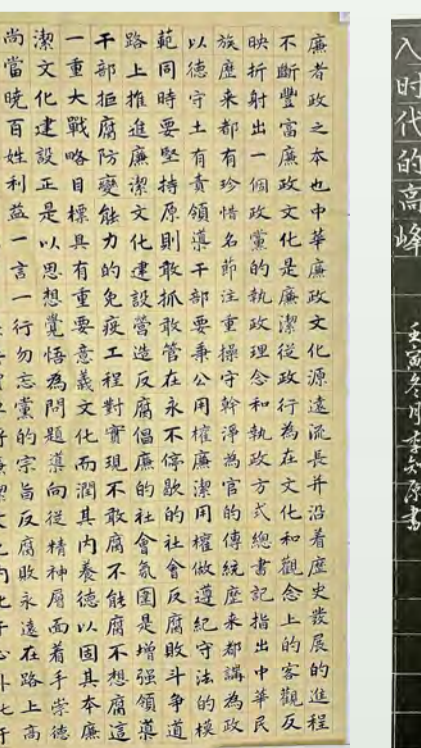 廉者政之本也中華廉政文化源遠流長并沿着歷史發展的進程
不斷豐富廉政文化是廉潔從政行為在文化和觀念上的客觀反
映折射出一個政黨的執政理念和執政方式總書記指出中華民
族歷来都有珍惜名節注重操守幹淨為官的傳統歷来都講為政
以德守土有責領導干部要秉公用權廉潔用權做遵紀守法的模
範同時要堅持原則敢抓敢管在永不停歇的社會反腐敗斗争道
路上推進廉潔文化建設營造反腐倡廉的社會氛圍是增强領導
干部拒腐防變能力的免疫工程對實現不敢腐不能腐不想腐這
一重大戰略目標具有重要意義文化而潤其内養德以固其本廉
潔文化建設正是以思想覺悟為問題導向從精神層面着手崇德
尚當曉百姓利益一言一行勿忘黨的宗旨反腐敗永遠在路上高
入时代的高峰
壬寅冬月李知原书